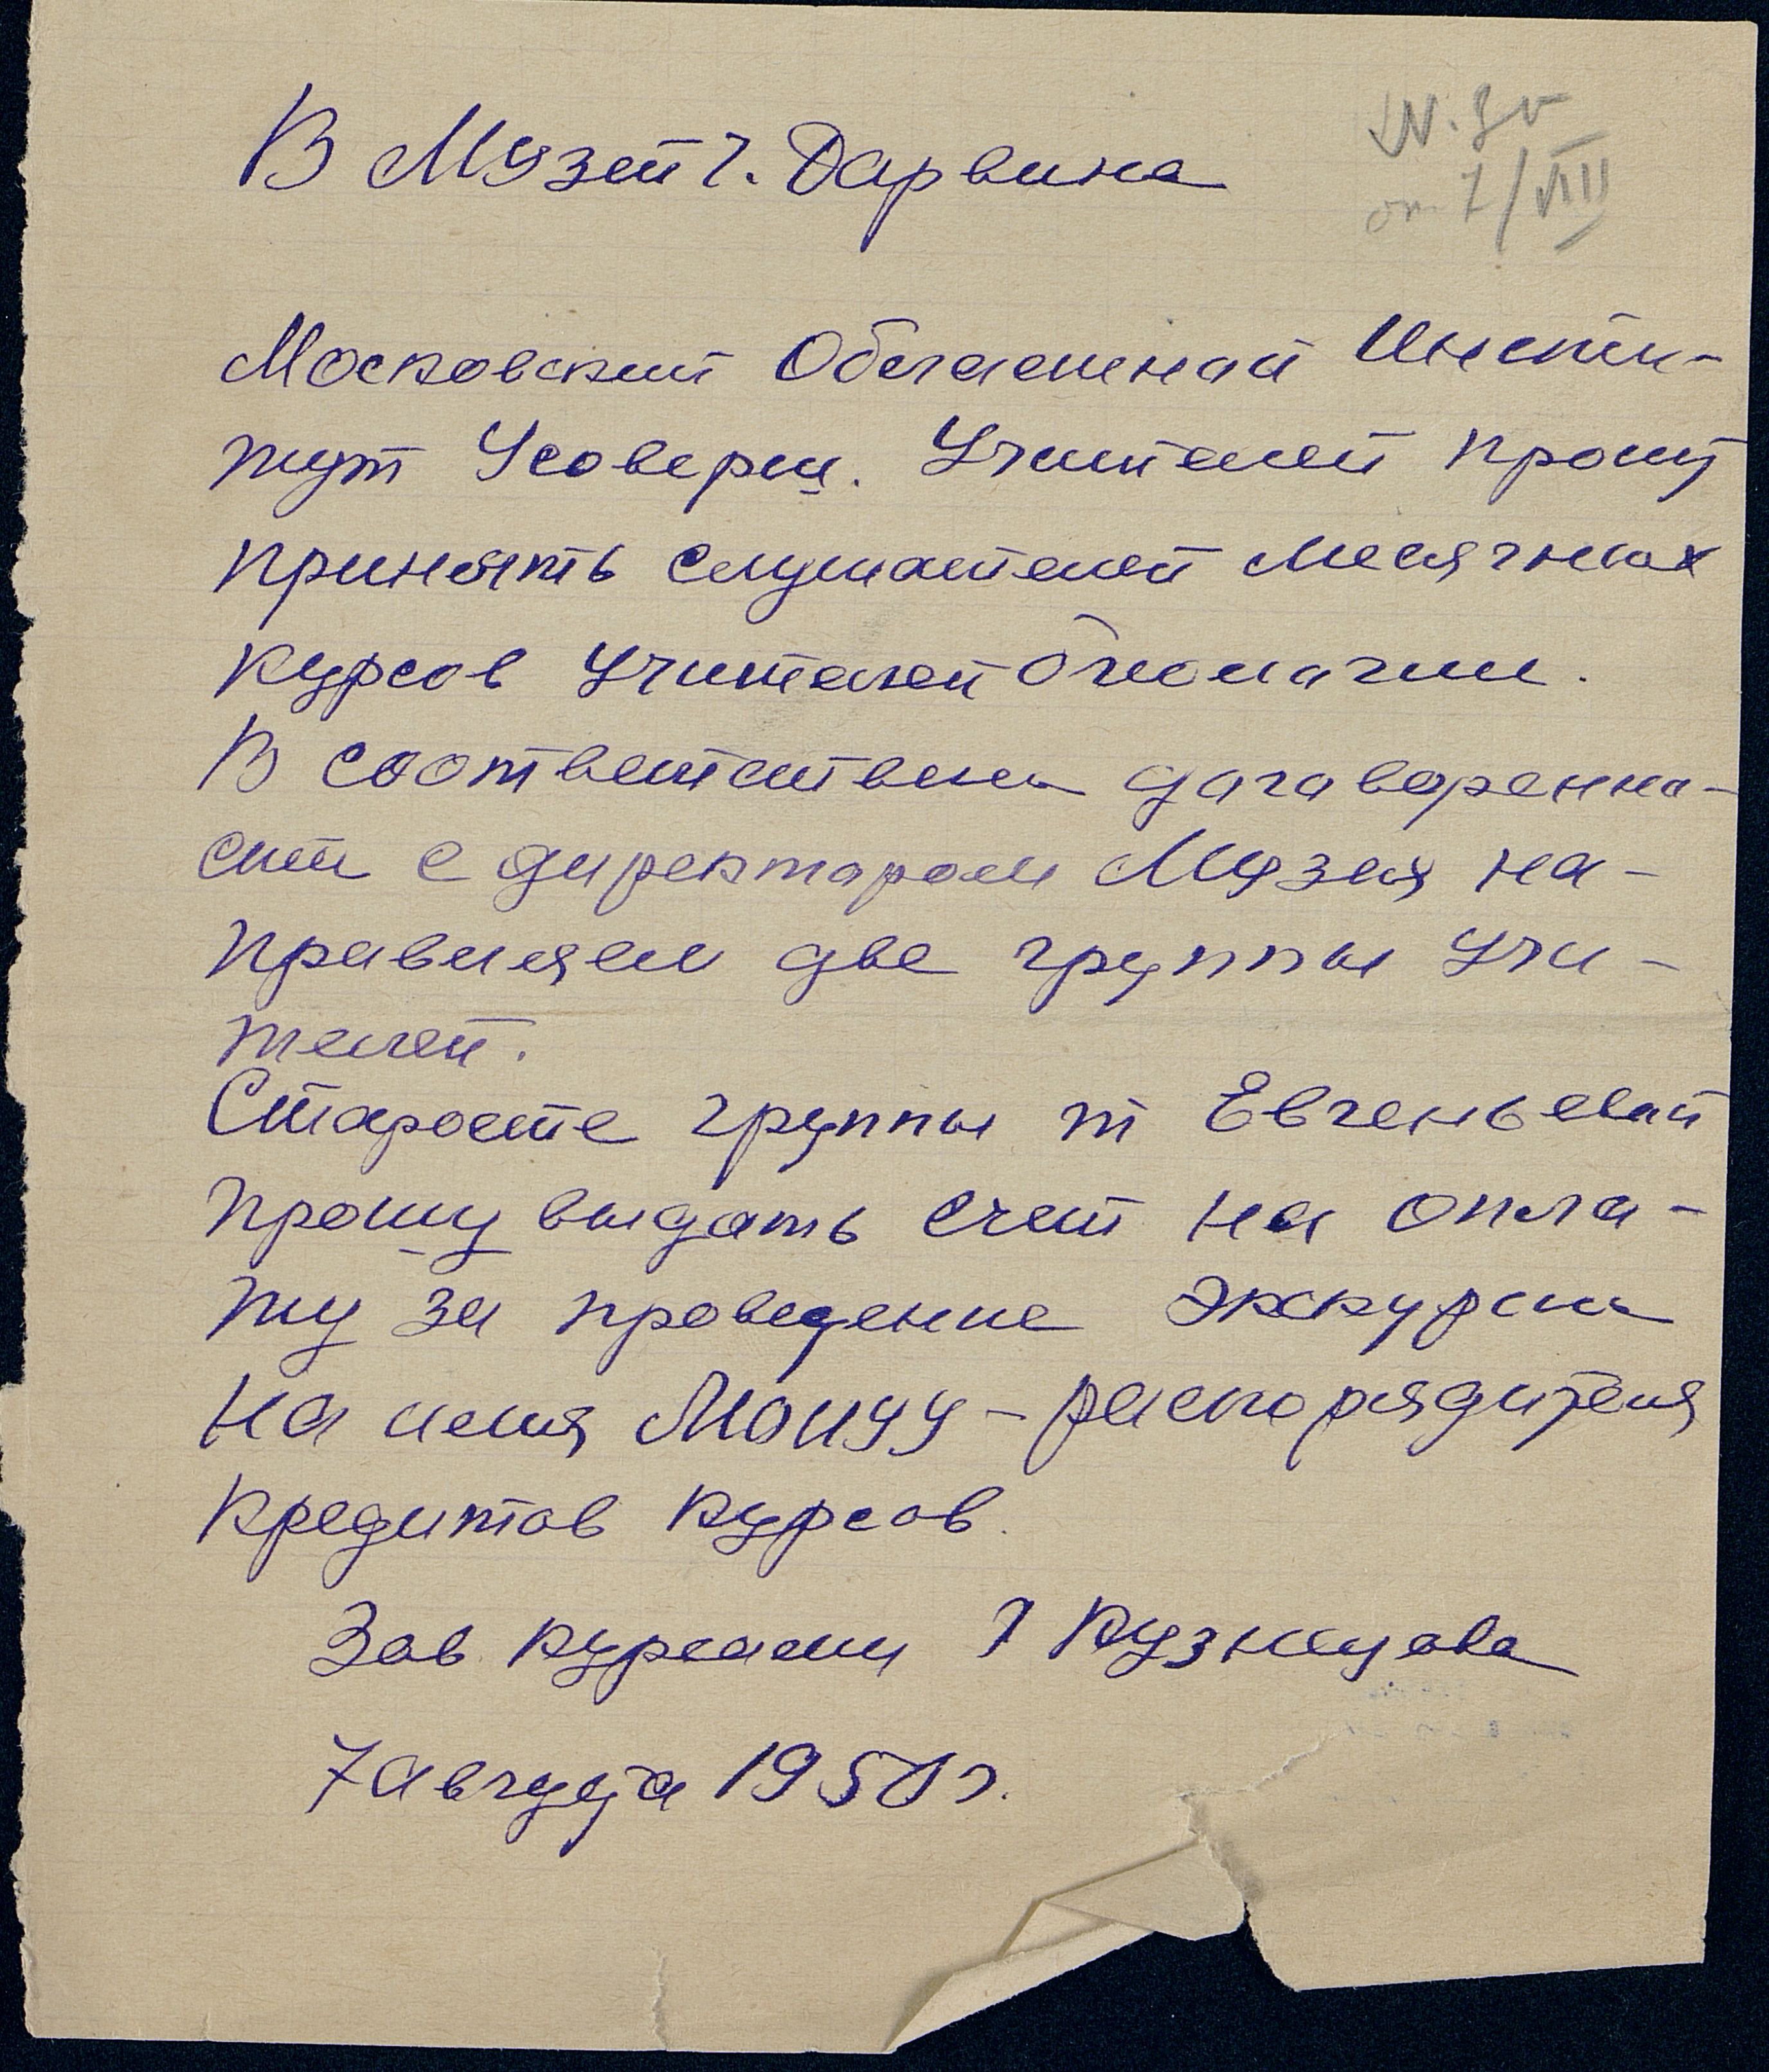 В Музей Ч. Дарвина
от 7/VIII
Московский Областной Инсти-
тут Усоверш. Учителей прошу
принять слушателей месячных
курсов учителей биологии.
В соответствии договоренно-
сти с директором Музея на-
правляем две группы учи-
телей.
Старосте группы т Евгеньевой
прошу выдать счет на опла-
ту за проведение экскурсии
на имя МОИУУ – распорядителя
кредитов курсов.
Зав курсами Кузнецова
7 августа 1950 г.